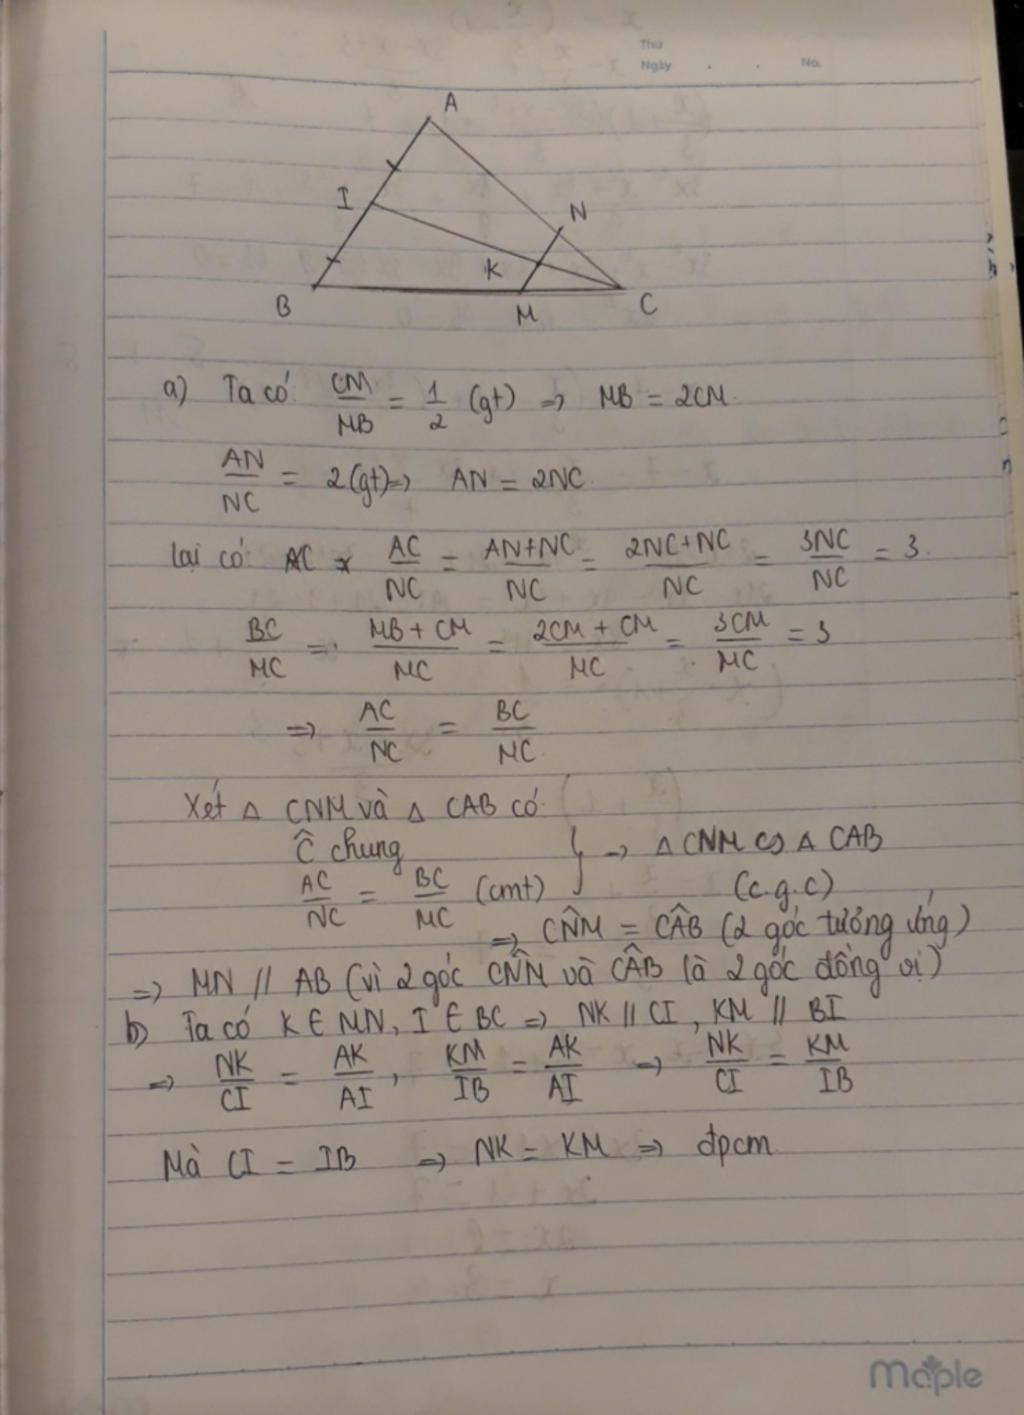 Thứ
Ngày . . No.
A
I
N
K
B
M
C
a) Ta có CM/MB = 1/2 (gt) => MB = 2CM.
AN/NC = 2(gt)=> AN = 2NC.
Lại có: AC/NC = AN+NC/NC = 2NC+NC/NC = 3NC/NC = 3.
BC/MC = MB+CM/MC = 2CM+CM/MC = 3CM/MC = 3
=> AC/NC = BC/MC
Xét Δ CNM và Δ CAB có:
Ĉ chung
AC/NC = BC/MC (cmt) } => Δ CNM ∽ Δ CAB
(c.g.c)
=> CN̂M = CÂB (2 góc tương ứng)
=> MN // AB (vì 2 góc CN̂M và CÂB là 2 góc đồng vị)
b) Ta có K ∈ MN, I ∈ BC => NK // CI, KM // BI
=> NK/CI = AK/AI, KM/IB = AK/AI => NK/CI = KM/IB
Mà CI = IB => NK = KM => đpcm.
maple